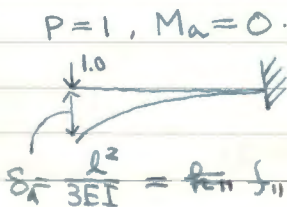 P = 1 , Ma = 0 .
1.0
δa = l² / 3EI = f₁₁